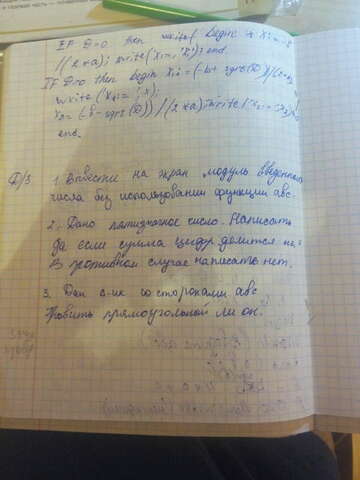 IF D=0 then write( begin x:=-b
/(2*a); write('x1=',x); end.
IF D>0 then begin x1:=(-b+sqrt(D))/(2*a)
write ('x1=',x);
x2=(-b-sqrt(D))/(2*a); write('x2=',x2)
end.
Д/З 1. Вывести на экран модуль введенного
числа без использования функции авс.
2. Дано пятизначное число. Написать
да если сумма цифр делится на
В противном случае написать нет.
3. Дан а-ик со сторонами авс
прямоугольной ли он.